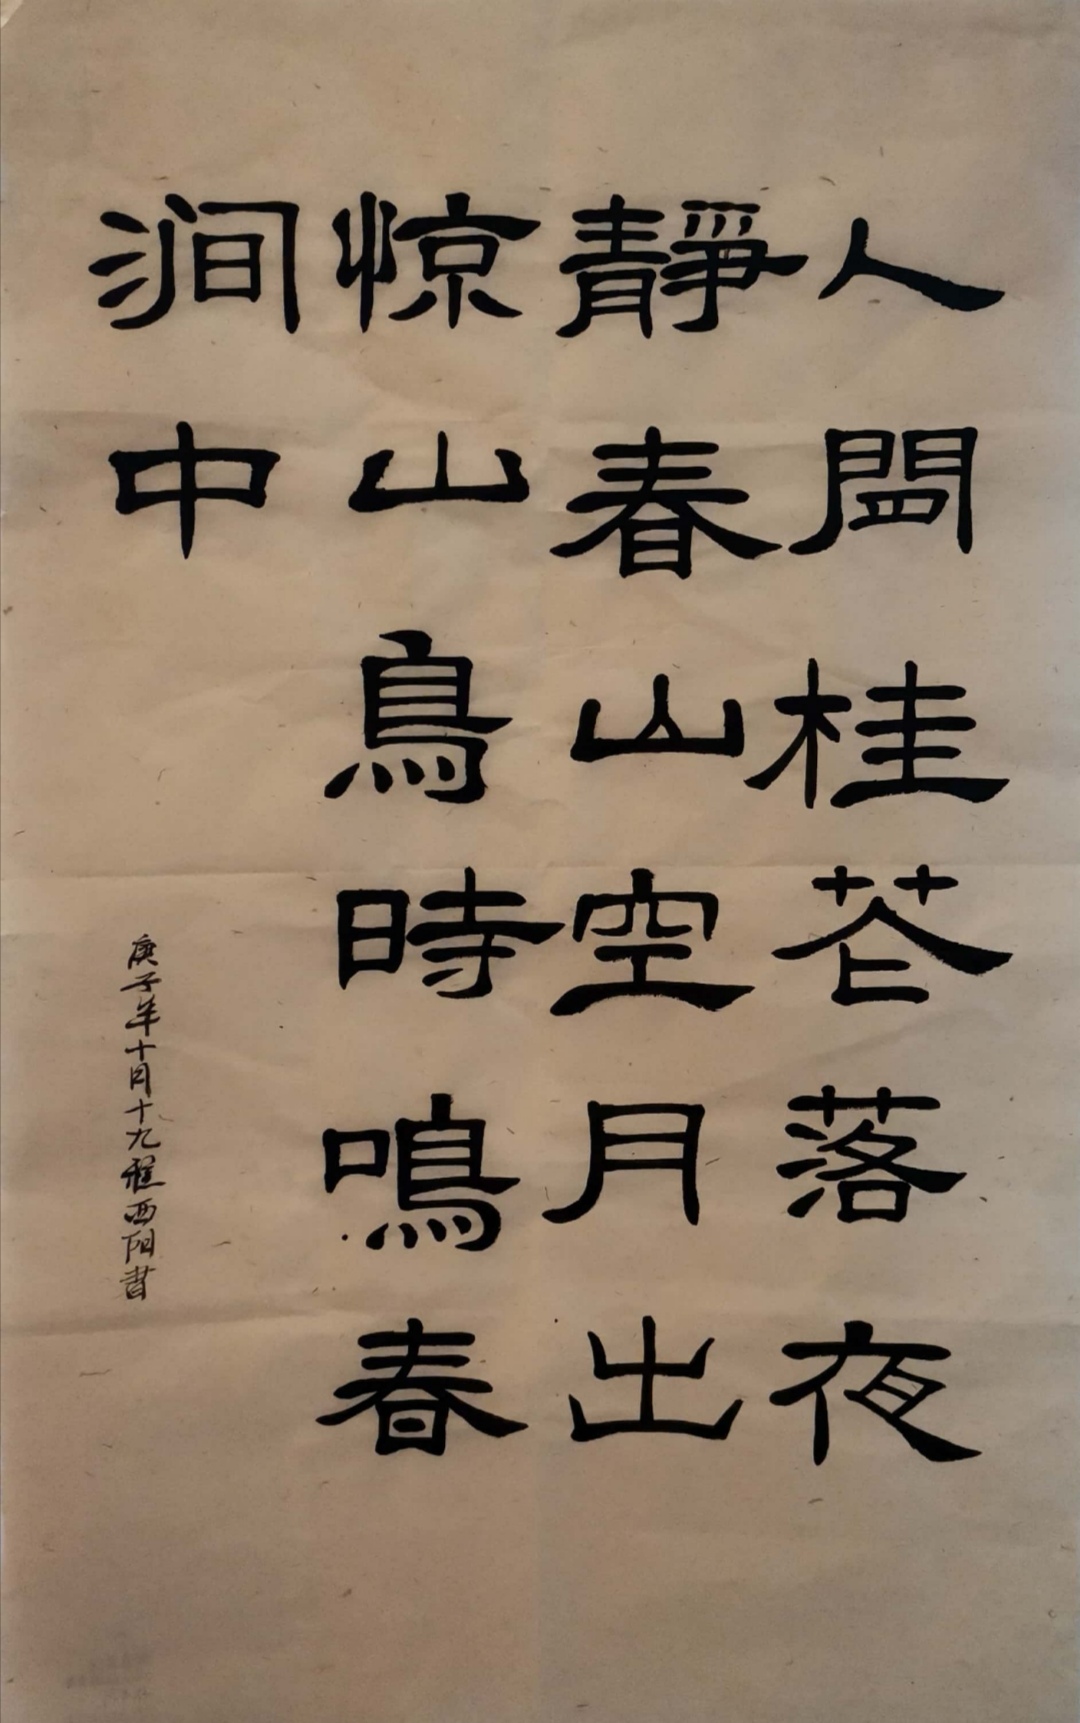 人閒桂花落夜
靜春山空月出
惊山鳥時鳴春
涧中
庚子年十月十九程西阳書